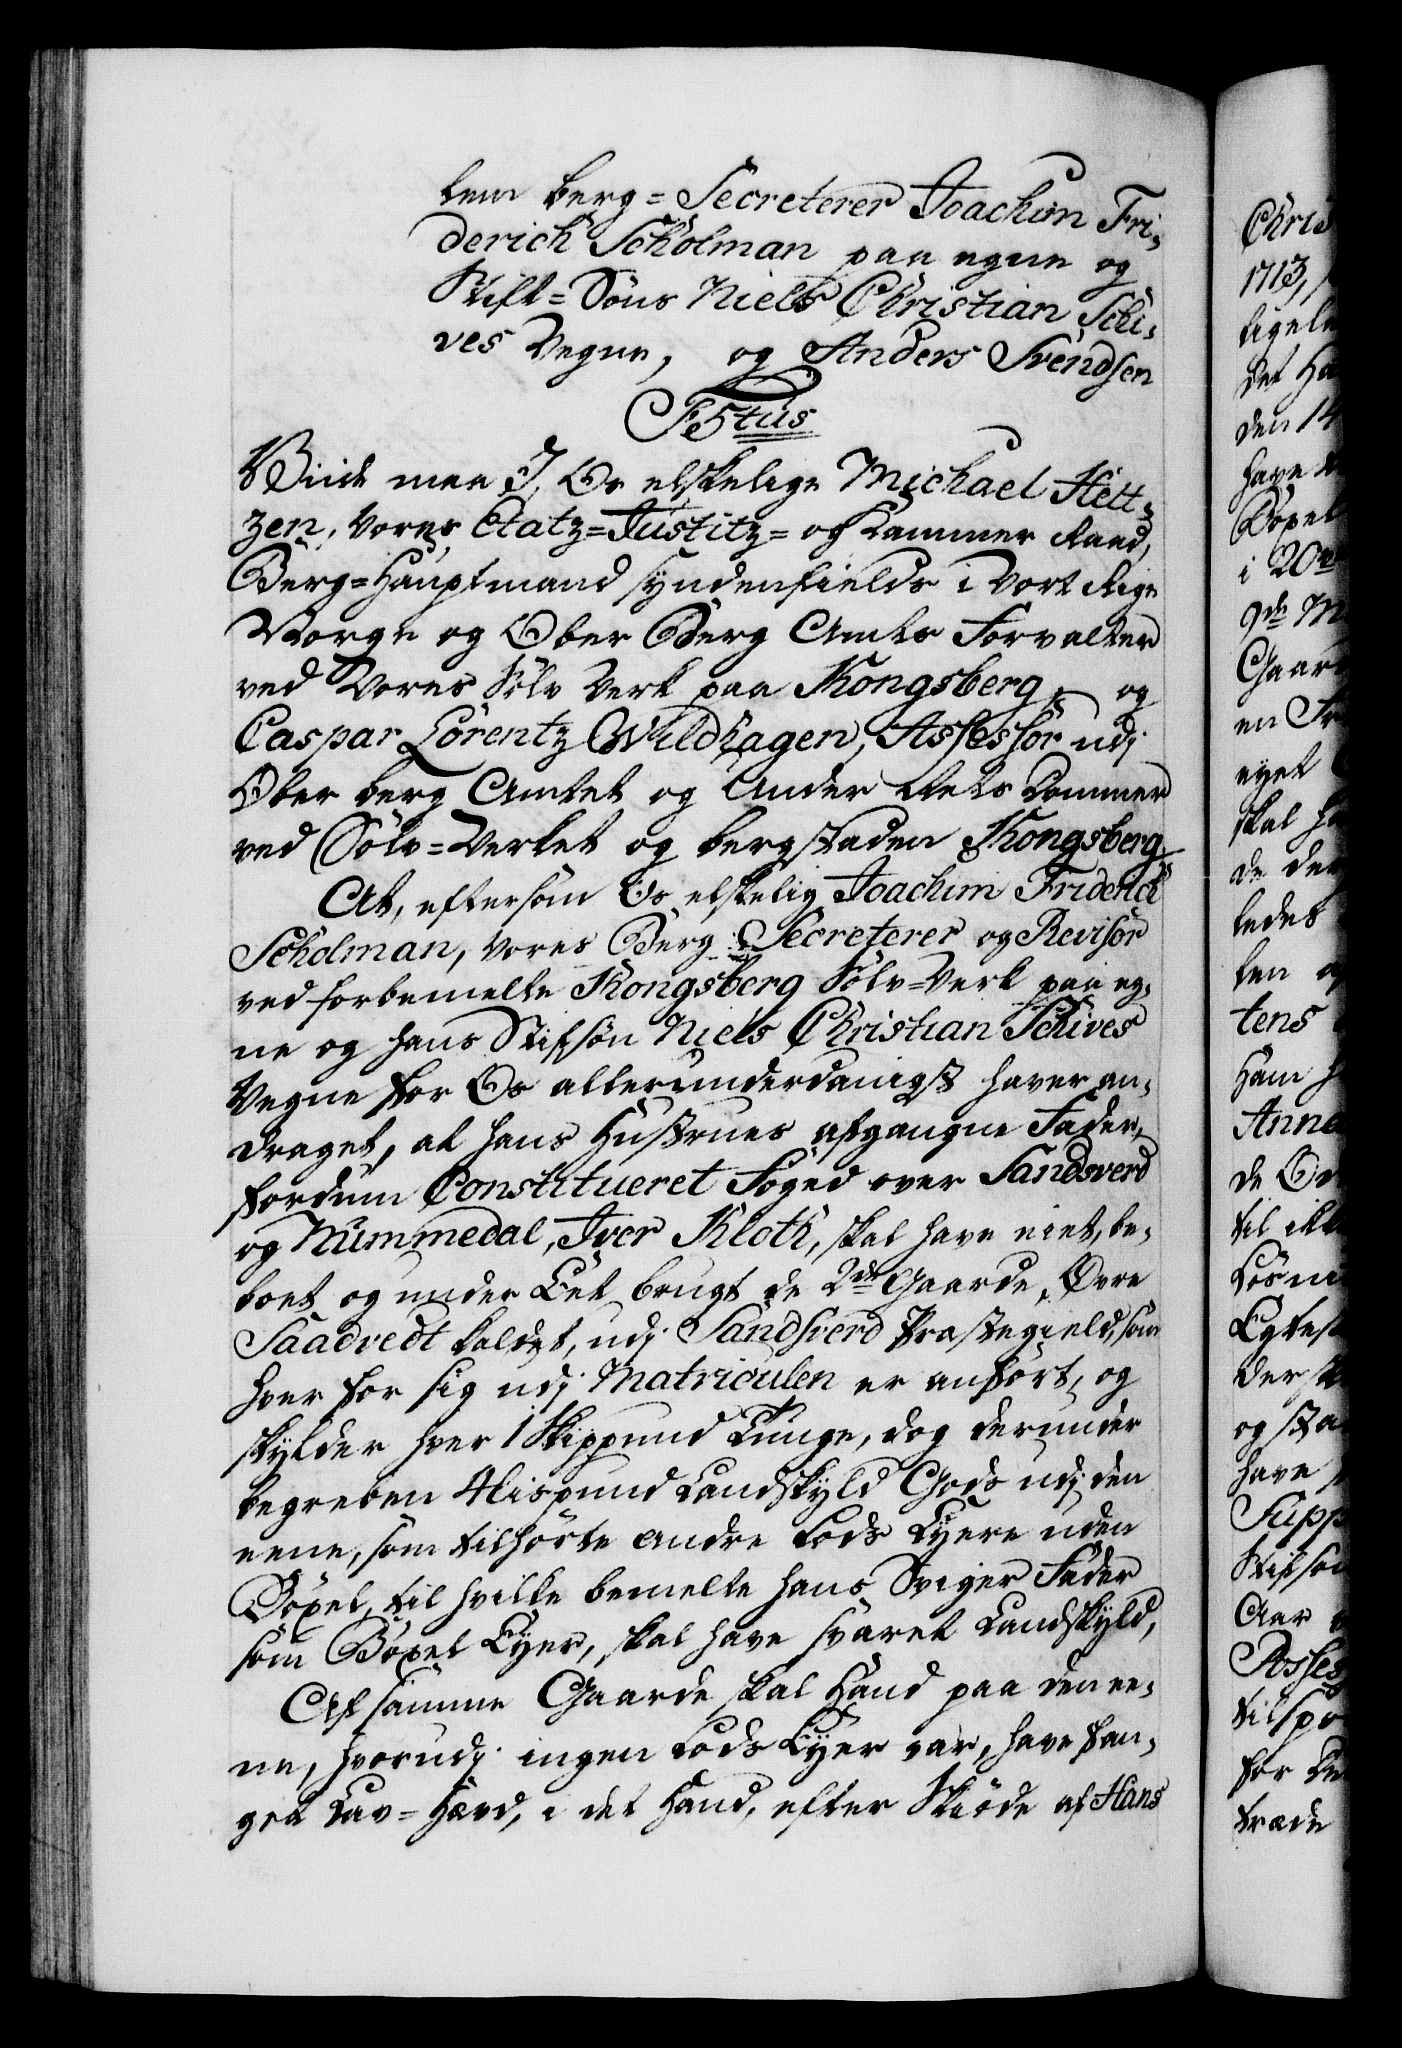 lem Berg=Secreterer Joachim Fri-
derich Scholman paa egne og
Stif=Söns Niels Christian Schi-
ves Vegne, og Anders Svendsen
F5tus
Viide maa I, Os elskelige Michael Helt-
zen, Vores Etatz=Justitz= og Cammer Raad,
Berg=Hauptmand syndenfields i Vort Rige
Norge og Ober Berg Amts Forvalter
ved Vores Sölv Verk paa Kongsberg, og
Caspar Lorentz Wildhagen, Assessor udj
Ober berg Amtet og Under Rets Dommer
ved Sölv=Verket og bergstaden Kongsberg,
At, eftersom Os elskelig Joachim Friderich
Scholman, Vores Berg=Secreterer og Revisor
ved forbemelte Kongsberg Sölv=Verk paa eg-
ne og hans Stifsön Niels Christian Schives
Vegne for Os allerunderdanigst haver an-
draget, at hans Hustrues afgangne Fader,
fordum Constitueret Foged over Sandsverd
og Nummedal, Iver Kloth, skal have eiet, be-
boet og under Eet brugt de 2de Gaarde, Övre
Saadvedt kaldet, udj Sandsverd Præstegield, som
hver for sig udj Matriculen er anfört, og
skylder hver 1 Skippund Tunge, dog derunder
begreben 4 Lispund Landskyld Gods udj den
eene, som tilhörte andre Lods Eyere uden
Böxel, til hvilke bemelte hans Sviger Fader
som Böxel Eyer, skal have svaret Landskyld,
Af samme Gaarde skal Hand paa den ee-
ne, hvorudj ingen Lods Eyer var, have fan-
get Lav=Hævd, i det Hand, efter Skiöde af Hans